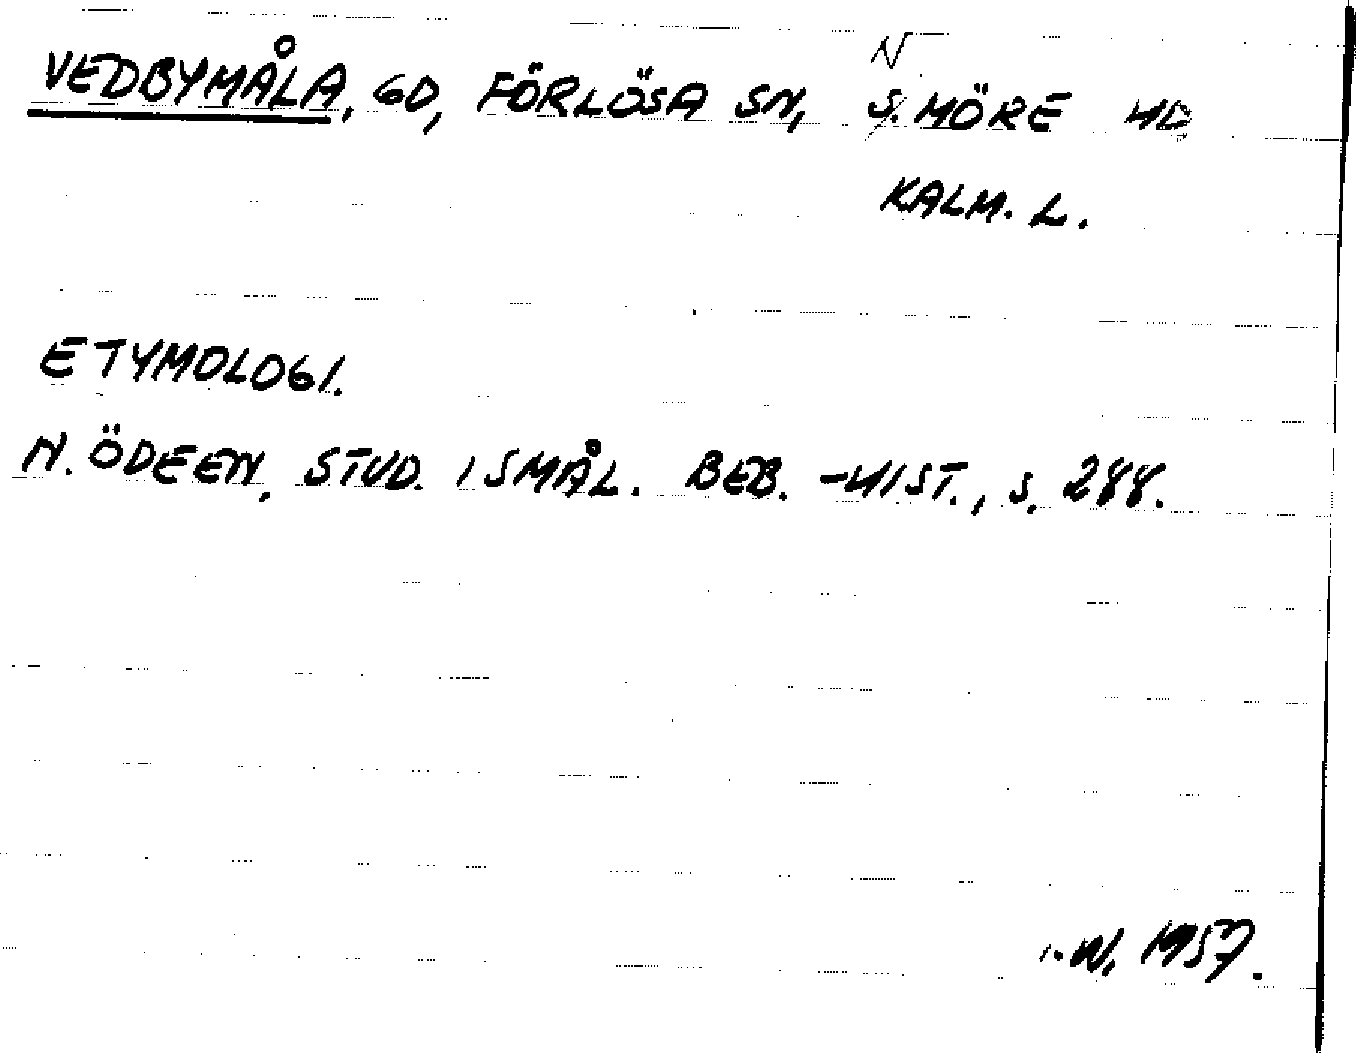 VEDBYMÅLA, GD, FÖRLÖSA SN, N S. MÖRE HD
KALM. L.
ETYMOLOGI.
N. ÖDEEN, STUD. I SMÅL. BEB.-HIST., S. 288.
1957.